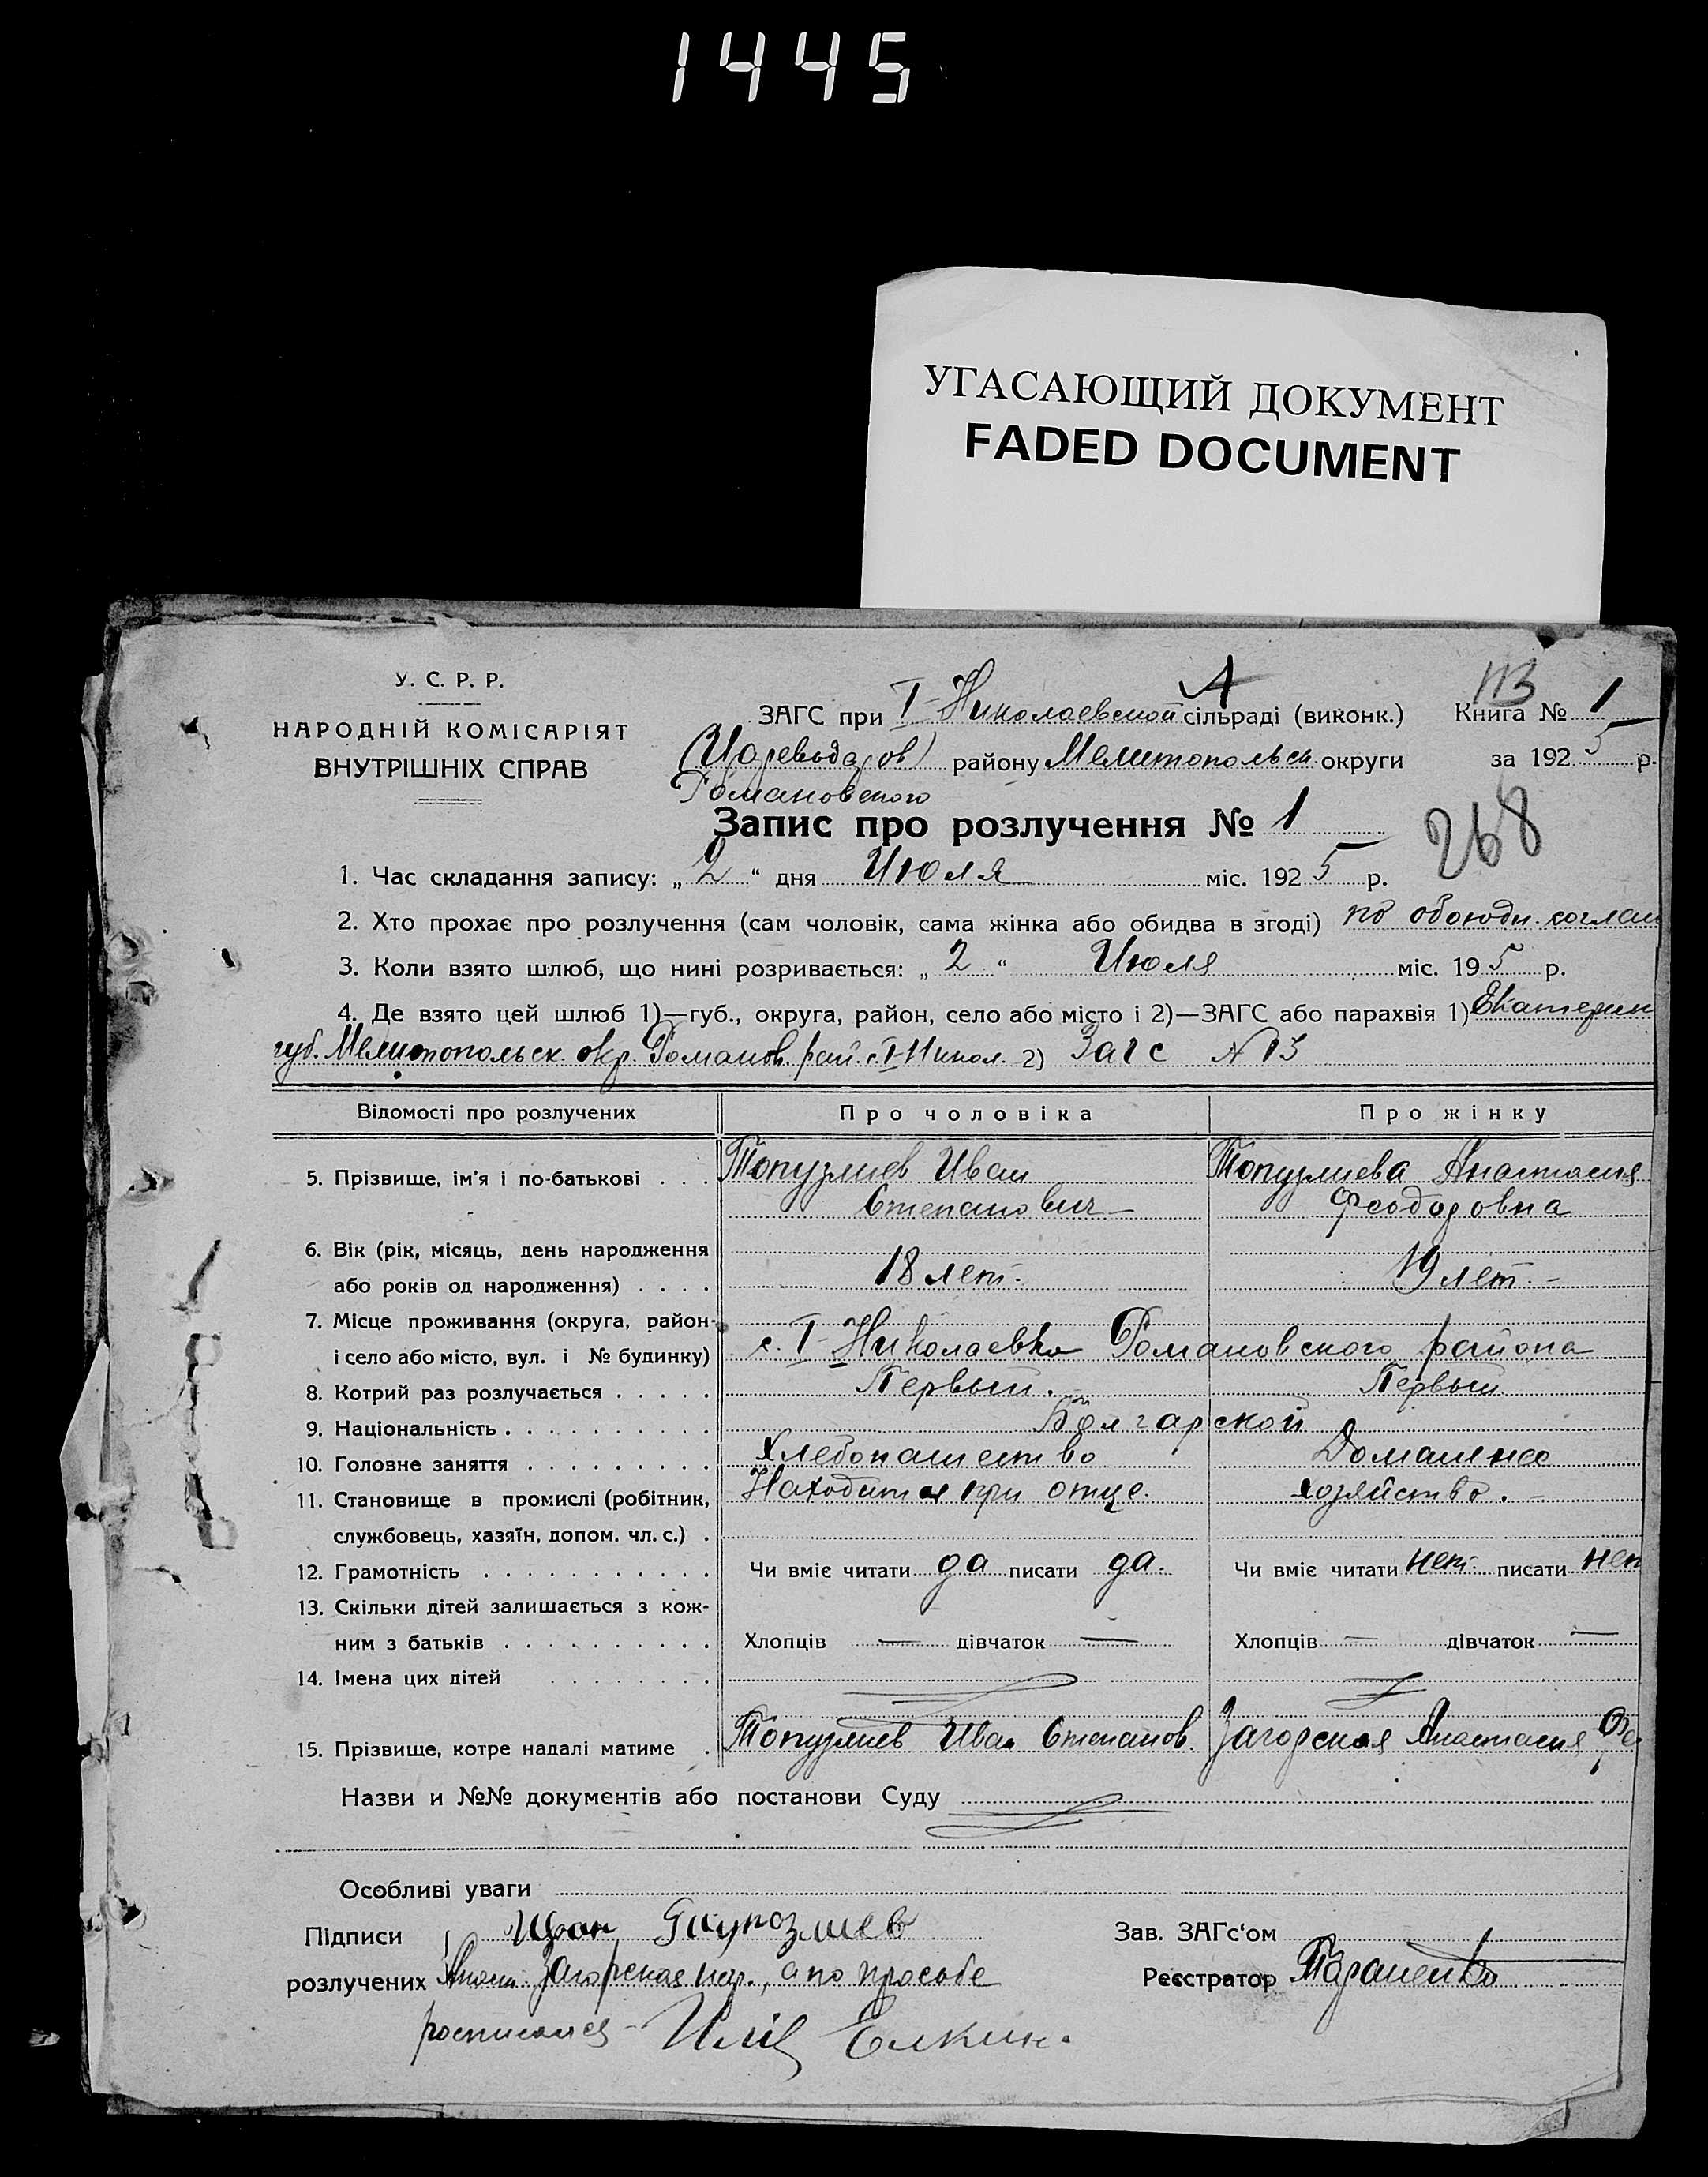 1445
УГАСАЮЩИЙ ДОКУМЕНТ
FADED DOCUMENT
У. С. Р. Р.
НАРОДНІЙ КОМІСАРІЯТ
ВНУТРІШНІХ СПРАВ
А
113
ЗАГС при I-Николаевской сільраді (виконк.) Книга № 1
(Цареводаров) району Мелитопольск округи за 1925 р.
Романовского
Запис про розлучення № 1
268
1. Час складання запису: „2“ дня Июля міс. 1925 р.
2. Хто прохає про розлучення (сам чоловік, сама жінка або обидва в згоді) по обоюдн. соглаш
3. Коли взято шлюб, що нині розривається: „2“ Июля міс. 195 р.
4. Де взято цей шлюб 1)—губ., округа, район, село або місто і 2)—ЗАГС або парахвія 1) Екатерин
губ. Мелитопольск. окр. Романов. рай. с. I-Никол. 2) Загс N 13
Відомості про розлучених Про чоловіка Про жінку
5. Прізвище, ім'я і по-батькові . . . Топузлиев Иван Топузлиева Анастасия
Степанович Феодоровна
6. Вік (рік, місяць, день народження
або років од народження) . . . . 18 лет. 19 лет.
7. Місце проживання (округа, район-
і село або місто, вул. і № будинку) с. I-Николаевка Романовского района
8. Котрий раз розлучається . . . . . Первый. Первый
9. Національність . . . . . . . . . . Болгарской
10. Головне заняття . . . . . . . . . Хлебопашество Домашнее
11. Становище в промислі (робітник, Находится при отце. хозяйство.
службовець, хазяїн, допом. чл. с.) .
12. Грамотність . . . . . . . . . . . Чи вміє читати да писати да. Чи вміє читати нет. писати нет
13. Скільки дітей залишається з кож-
ним з батьків . . . . . . . . . . Хлопців — дівчаток — Хлопців — дівчаток —
14. Імена цих дітей . . . . . . . .
15. Прізвище, котре надалі матиме . Топузлиев Иван Степанов. Загорская Анастасия Фе
Назви и №№ документів або постанови Суду
Особливі уваги
Підписи Иван Зав. ЗАГс'ом
розлучених Анаст Загорская нег., а по прособе Реєстратор Тараненко
росписался Илія Елкин.